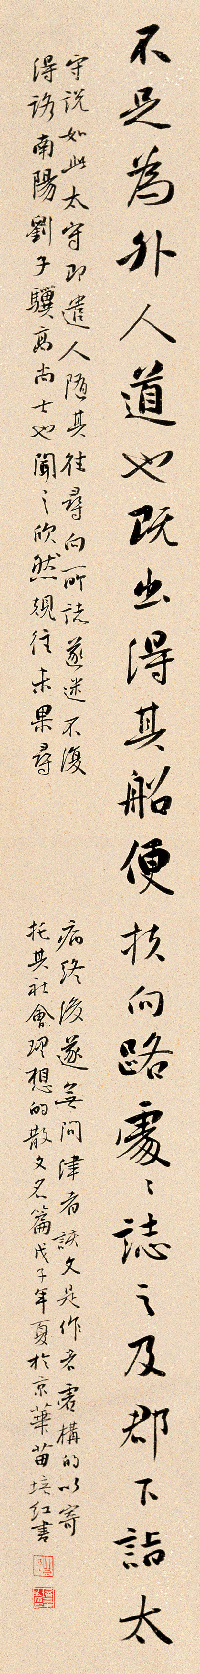 不足為外人道也既出得其船便扶向路處〻誌之及郡下詣太
守說如此太守即遣人隨其往尋向所誌遂迷不復
得路南陽劉子驥高尚士也聞之欣然規往未果尋
病終後遂無問津者該文是作者虛構的以寄
托其社會理想的散文名篇戊子年夏於京華苗培红書